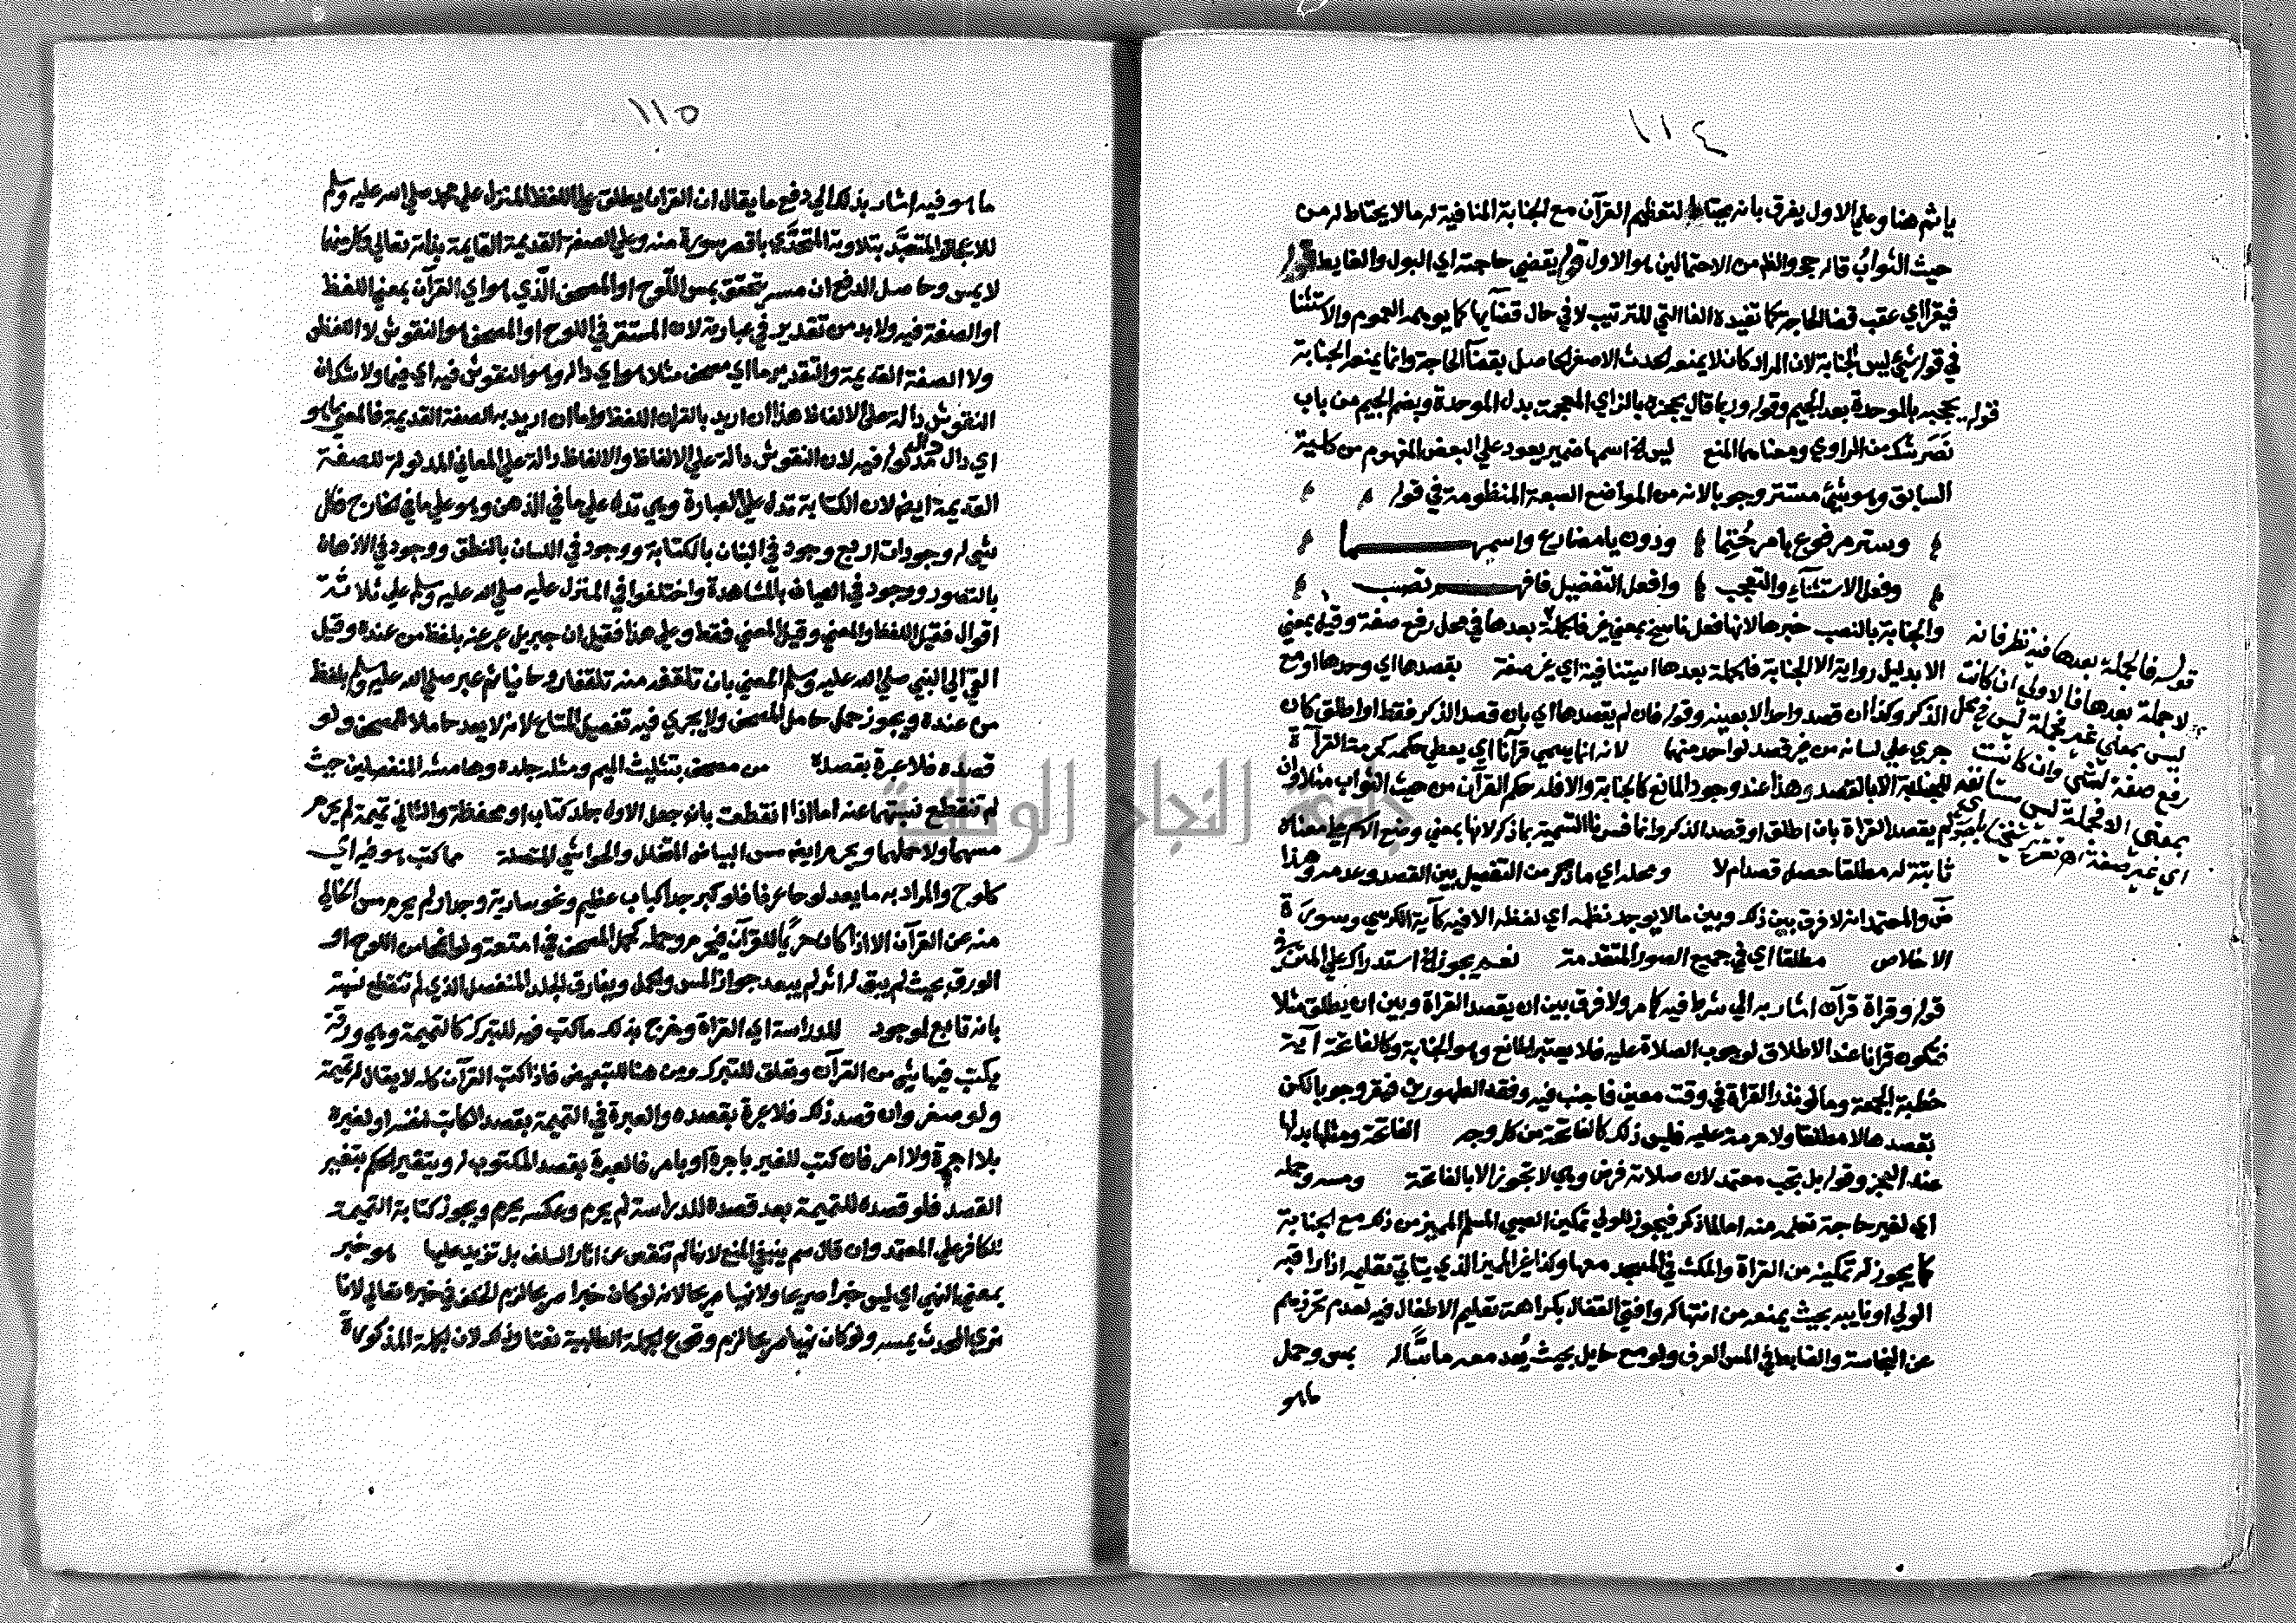 ١١٤
يأثم هنا وعلي الاول يفرق بانه يحتاط لتعظيم القرآن مع الجنابة المنافية له مالا يحتاط له من
حيث الثواب قاله حج والظ من الاحتمالين هو الاول قوله يقضي حاجته اي البول والغايط قوله
فيقرا اي عقب قضا الحاجة كما تفيده الفا التي للترتيب لا في حال قضآيها كما يوهمه العموم والاستثنا
في قوله شيء ليس الجنابة لان المراد كان لا يمنعه الحدث الاصغر الحاصل بقضآ الحاجة وانما يمنعه الجنابة
قوله يحجبه بالموحدة بعد الجيم وقوله وربما قال يحجزه بالزاي المعجمة بدل الموحدة وبضم الجيم من باب
نَصَرَ شك من الراوي ومعناهما المنع ليس اسمها ضمير يعود علي البعض المفهوم من كلية
السابق وهو شيء مستتر وجوبا لانه من المواضع السبعة المنظومة في قوله
وستر مرفوع بامر حُتِما ودون يا مضارع واسمهما
وفعل الاستثنآء والتعجب وافعل التفضيل فافهم تصب
والجنابة بالنصب خبرها لانها فعل ناسخ بمعني غير فالجملة بعدها في محل رفع صفة وقيل بمعني
الا بدليل رواية الا الجنابة فالجملة بعدها استئنافية اي غير صفة بقصدها اي وحدها او مع
الذكر وكذا ان قصد واحدا لا بعينه وقوله فان لم يقصدها اي بان قصد الذكر فقط او اطلق كان
جري علي لسانه من غير قصد لواحد منها لانه انما يسمي قرآنا اي يعطي حكمه كحرمة القرآة
للجنابة الا بالقصد وهذا عند وجود المانع كالجنابة والا فله حكم القرآن من حيث الثواب مثلا وان
لم يقصد القراة بان اطلق او قصد الذكر وانما فسرنا التسمية بما ذكر لانها بمعني وضع الاسم علي معناه
ثابتة له مطلقا حصل قصد ام لا ومحله اي ما ذكر من التفصيل بين القصد وعدمه وهذا
ضَ والمعتمد انه لا فرق بين ذلك وبين مالا يوجد نظمه اي لفظه الا فيه كآية الكرسي وسورة
الاخلاص مطلقا اي في جميع الصور المتقدمة نعم يجوز له استدراك علي المتن في
قوله وقراة قرآن اشار به الي شرط فيه كما مر ولا فرق بين ان يقصد القراة وبين ان يطلق مثلا
فتكون قرانا عند الاطلاق لوجوب الصلاة عليه فلا يعتبر المانع وهو الجنابة وكالفاتحة آية
خطبة الجمعة وما لو نذر القراة في وقت معين فاجنب فيه وفقد الطهورين فيقر وجوبا لكن
بقصدها لا مطلقا ولا حرمة عليه فليس ذلك كالفاتحة من كل وجه الفاتحة ومثلها بدلها
عند العجز وقوله بل تجب معتمد لان صلاته فرض وهي لا تجوز الا بالفاتحة ومسه وحمله
اي لغير حاجة تعلمه منه اما لما ذكر فيجوز للولي تمكين الصبي المسلم المميز من ذلك مع الجنابة
كما يجوز له تمكينه من القراة والمكث في المسجد معها وكذا غير المميز الذي يتاتي تعليمه اذا راقبه
الولي او نايبه بحيث يمنعه من انتهاكه وافتي القفال بكراهة تعليم الاطفال فيه لعدم تحرزهم
عن النجاسة والضابط في المس العرف ولو مع حايل بحيث يُعد معه ماسّا له بمس وحمل
ماهو
قوله فالجملة بعدها فيه نظر فانه
لا جملة بعدها فالاولي ان كانت
ليس بمعني غير فجملة ليس في محل
رفع صفة لشي وان كانت
بمعني الا فجملة ليس مستانفه
اي غير صفة اه تقرير شيخنا
١١٥
ما هو فيه اشار بذلك الي دفع ما يقال ان القران يطلق علي اللفظ المنزل علي محمد صلي الله عليه وسلم
للاعجاز المتعبَّد بتلاوته المتحدَّي باقصر سورة منه وعلي الصفة القديمة القايمة بذاته تعالي وكل منهما
لا يمس وحاصل الدفع ان مسه يتحقق بمس اللوح او المصحف الذي هو اي القرآن بمعني اللفظ
او الصفة فيه ولا بد من تقدير في عبارته لان المستقر في اللوح او المصحف هو النقوش لا اللفظ
ولا الصفة القديمة والتقدير ما اي مصحف مثلا هو اي داله وهو النقوش فيه اي فيها ولا شك ان
النقوش دالة علي الالفاظ هذا ان اريد بالقران اللفظ واما ان اريد به الصفة القديمة فالمعني ما هو
اي دال دال مدلوله فيه لان النقوش دالة علي الالفاظ والالفاظ دالة علي المعاني المدلولة للصفة
القديمة ايضا لان الكتابة تدل علي العبارة وهي تدل علي ما في الذهن وهو علي ما في الخارج فكل
شي له وجودات اربع وجود في البنان بالكتابة ووجود في اللسان بالنطق ووجود في الاذهان
بالتصور ووجود في العيان بالمشاهدة واختلفوا في المنزل عليه صلي الله عليه وسلم علي ثلاثة
اقوال فقيل اللفظ والمعني وقيل المعني فقط وعلي هذا فقيل ان جبريل عبر عنه بلفظ من عنده وقيل
القي الي النبي صلي الله عليه وسلم المعني بان تلقفه منه تلقفا روحانيا ثم عبر صلي الله عليه وسلم بلفظ
من عنده ويجوز حمل حامل المصحف ولا يجري فيه تفصيل المتاع لانه لا يعد حاملا للمصحف ولو
قصده فلا عبرة بقصده من مصحف بتثليث الميم ومثله جلده وهامشه المنفصلين حيث
لم تنقطع نسبتهما عنه اما اذا انقطعت بان جعل الاول جلد كتاب او محفظة والثاني تميمة لم يحرم
مسهما ولا حملها ويحرم ايضا مس البياض المتخلل والحواشي المتصلة مما كتب هو فيه اي
كلوح والمراد به ما يعد لوحا عرفا فلو كبر جدا كباب عظيم وغو سارية وجدار لم يحرم مس الخالي
منه عن القرآن الا اذا كان حريما للقرآن فيحرم وحمله كحمل المصحف في امتعة ولو انمحاس اللوح او
الورق بحيث لم يبق له اثر لم يبعد جواز المس والحمل ويفارق الجلد المنفصل الذي لم تنقطع نسبته
بانه تابع لموجود للدراسة اي القراة وخرج بذلك ما كتب فيه للتبرك كالتميمة وهي ورقة
يكتب فيها شي من القرآن وتعلق للتبرك ومن هنا للتبعيض فاذا كتب القرآن كله لا يقال له تميمة
ولو صغر وان قصد ذلك فلا عبرة بقصده والعبرة في التميمة بقصد الكاتب لنفسه او لغيره
بلا اجرة ولا امر فان كتب للغير باجرة او بامر فالعبرة بقصد المكتوب له ويتغير الحكم بتغير
القصد فلو قصده للتميمة بعد قصده للدراسة لم يحرم وعكسه يحرم ويجوز كتابة التميمة
للكافر علي المعتمد وان قال سم ينبغي المنع لانها لم تنقص عن اثار السلف بل تزيد عليها هو خبر
بمعني النهي اي ليس خبرا صريحا ولا نهيا صريحا لانه لو كان خبرا صريحا لزم الخلف في خبره تعالي لانا
نري المحدث يمسه ولو كان نهيا صريحا لزم وقوع الجملة الطلبية نعتا وذلك لان الجملة المذكورة
جامعة النجاح الوطنية